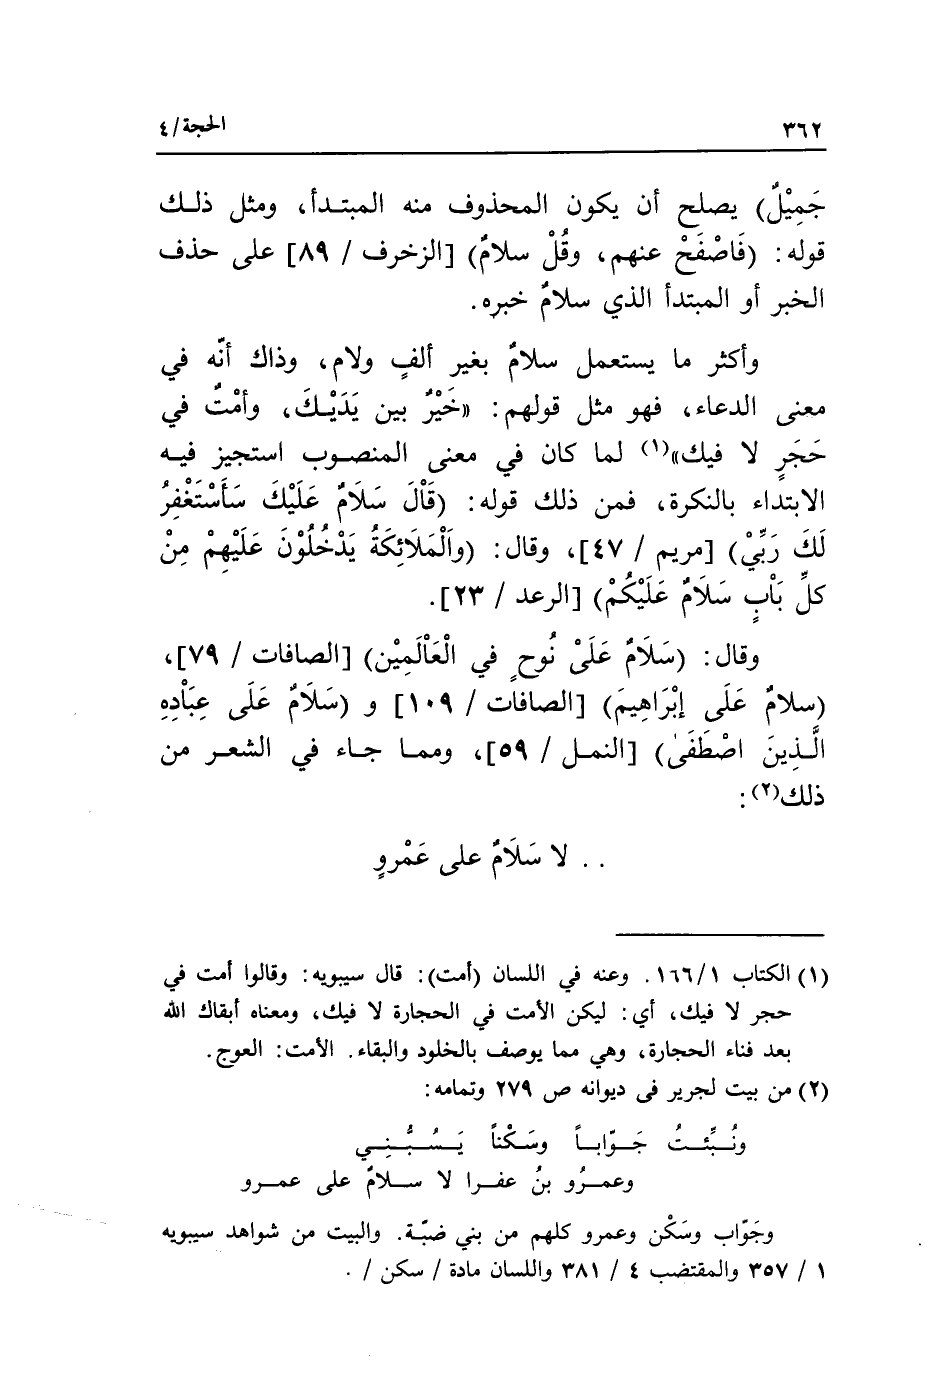 ٣٦٢ الحجة/٤
جَمِيْلٌ) يصلح أن يكون المحذوف منه المبتدأ، ومثل ذلك
قوله: (فَاصْفَحْ عنهم، وقُلْ سلامٌ) [الزخرف / ٨٩] على حذف
الخبر أو المبتدأ الذي سلامٌ خبره.
وأكثر ما يستعمل سلامٌ بغير ألفٍ ولام، وذاك أنّه في
معنى الدعاء، فهو مثل قولهم: «خَيْرٌ بين يَدَيْكَ، وأمْتٌ في
حَجَرٍ لا فيك»(١) لما كان في معنى المنصوب استجيز فيه
الابتداء بالنكرة، فمن ذلك قوله: (قَالَ سَلَامٌ عَلَيْكَ سَأَسْتَغْفِرُ
لَكَ رَبِّيْ) [مريم / ٤٧]، وقال: (والْمَلَائِكَةُ يَدْخُلُوْنَ عَلَيْهِمْ مِنْ
كلِّ بَابٍ سَلَامٌ عَلَيْكُمْ) [الرعد / ٢٣].
وقال: (سَلَامٌ عَلَىْ نُوحٍ في الْعَالَمِيْن) [الصافات / ٧٩]،
(سلامٌ عَلَى إبْرَاهِيمَ) [الصافات / ١٠٩] و (سَلَامٌ عَلَى عِبَادِهِ
الَّذِينَ اصْطَفَىٰ) [النمل / ٥٩]، ومما جاء في الشعر من
ذلك(٢):
. . لا سَلَامٌ على عَمْرٍو
(١) الكتاب ١٦٦/١. وعنه في اللسان (أمت): قال سيبويه: وقالوا أمت في
حجر لا فيك، أي: ليكن الأمت في الحجارة لا فيك، ومعناه أبقاك الله
بعد فناء الحجارة، وهي مما يوصف بالخلود والبقاء. الأمت: العوج.
(٢) من بيت لجرير في ديوانه ص ٢٧٩ وتمامه:
ونُبِّئتُ جَوّاباً وسَكْناً يَسُبُّنِي
وعمرُو بنُ عفرا لا سلامٌ على عمرو
وجَوّاب وسَكْن وعمرو كلهم من بني ضبّة. والبيت من شواهد سيبويه
١ / ٣٥٧ والمقتضب ٤ / ٣٨١ واللسان مادة / سكن / .